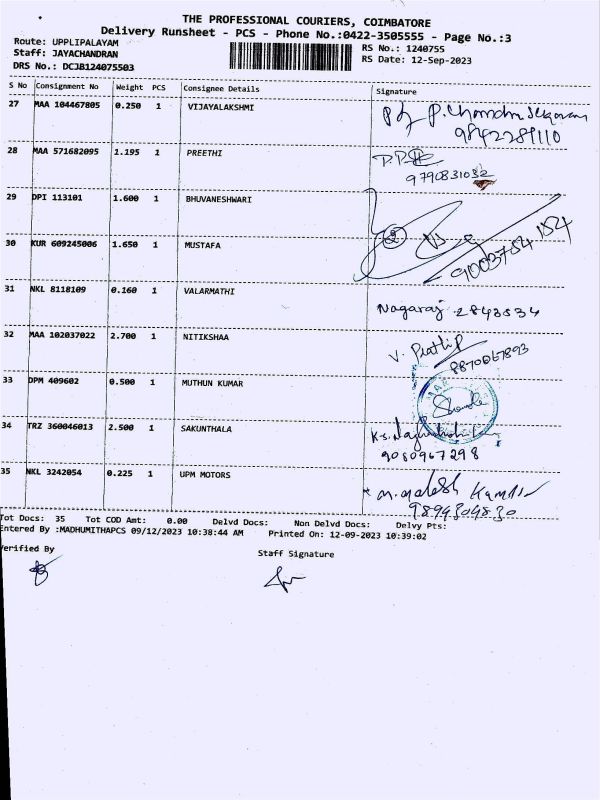 THE PROFESSIONAL COURIERS, COIMBATORE
Delivery Runsheet - PCS - Phone No.:0422-3505555 - Page No.:3
Route: UPPLIPALAYAM RS No.: 1240755
Staff: JAYACHANDRAN RS Date: 12-Sep-2023
DRS No.: DCJB124075503
S No Consignment No Weight PCS Consignee Details Signature
27 MAA 104467805 0.250 1 VIJAYALAKSHMI
9842289110
28 MAA 571682095 1.195 1 PREETHI
9790831032
29 DPI 113101 1.600 1 BHUVANESHWARI
30 KUR 609245006 1.650 1 MUSTAFA
9003754 154
31 NKL 8118109 0.160 1 VALARMATHI
Nagaraj 2843534
32 MAA 102037022 2.700 1 NITIKSHAA
V. Prathip
8870067893
33 DPM 409602 0.500 1 MUTHUN KUMAR
34 TRZ 360046013 2.500 1 SAKUNTHALA
9080967298
35 NKL 3242054 0.225 1 UPM MOTORS
9894304830
Tot Docs: 35 Tot COD Amt: 0.00 Delvd Docs: Non Delvd Docs: Delvy Pts:
Entered By :MADHUMITHAPCS 09/12/2023 10:38:44 AM Printed On: 12-09-2023 10:39:02
Verified By Staff Signature